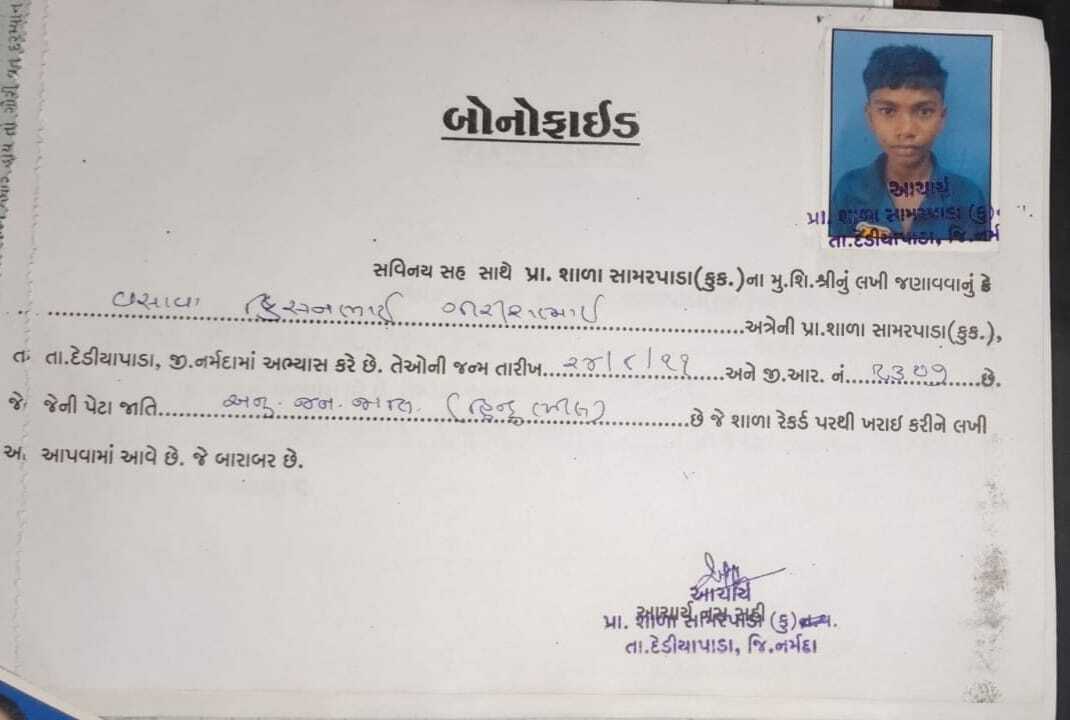 બોનોફાઈડ
આચાર્ય
પ્રા. શાળા સામરપાડા (કુ)
તા.દેડીયાપાડા, જિ.નર્મ
સવિનય સહ સાથે પ્રા. શાળા સામરપાડા(કુક.)ના મુ.શિ.શ્રીનું લખી જણાવવાનું કે
વસાવા કિસનભાઈ .....અત્રેની પ્રા.શાળા સામરપાડા(કુક.),
તા.દેડીયાપાડા, જી.નર્મદામાં અભ્યાસ કરે છે. તેઓની જન્મ તારીખ.....૨૪/૮/૧૧.....અને જી.આર. નં.....૨૩૭૧.....છે.
જેની પેટા જાતિ.....અનુ. જન. જાતિ. (હિન્દુ ભીલ).....છે જે શાળા રેકર્ડ પરથી ખરાઈ કરીને લખી
આપવામાં આવે છે. જે બારાબર છે.
આચાર્ય
પ્રા. શાળા સામરપાડા (કુ)
તા.દેડીયાપાડા, જિ.નર્મદા